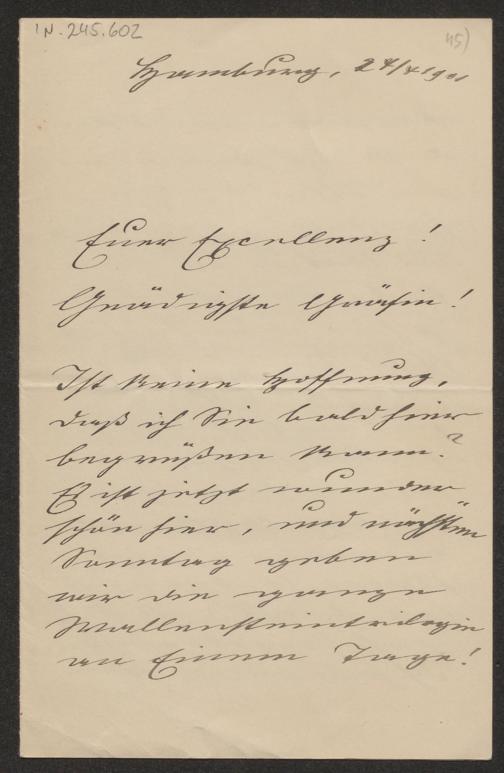 IN. 245.602
45)
Hamburg, 27/4 1901
Euer Excellenz!
Gnädigste Gräfin!
Ist keine Hoffnung,
daß ich Sie bald hier
begrüßen kann?
Es ist jetzt wunder
schön hier, und nächsten
Sonntag geben
wir die ganze
Wallensteintrilogie
an Einem Tage!